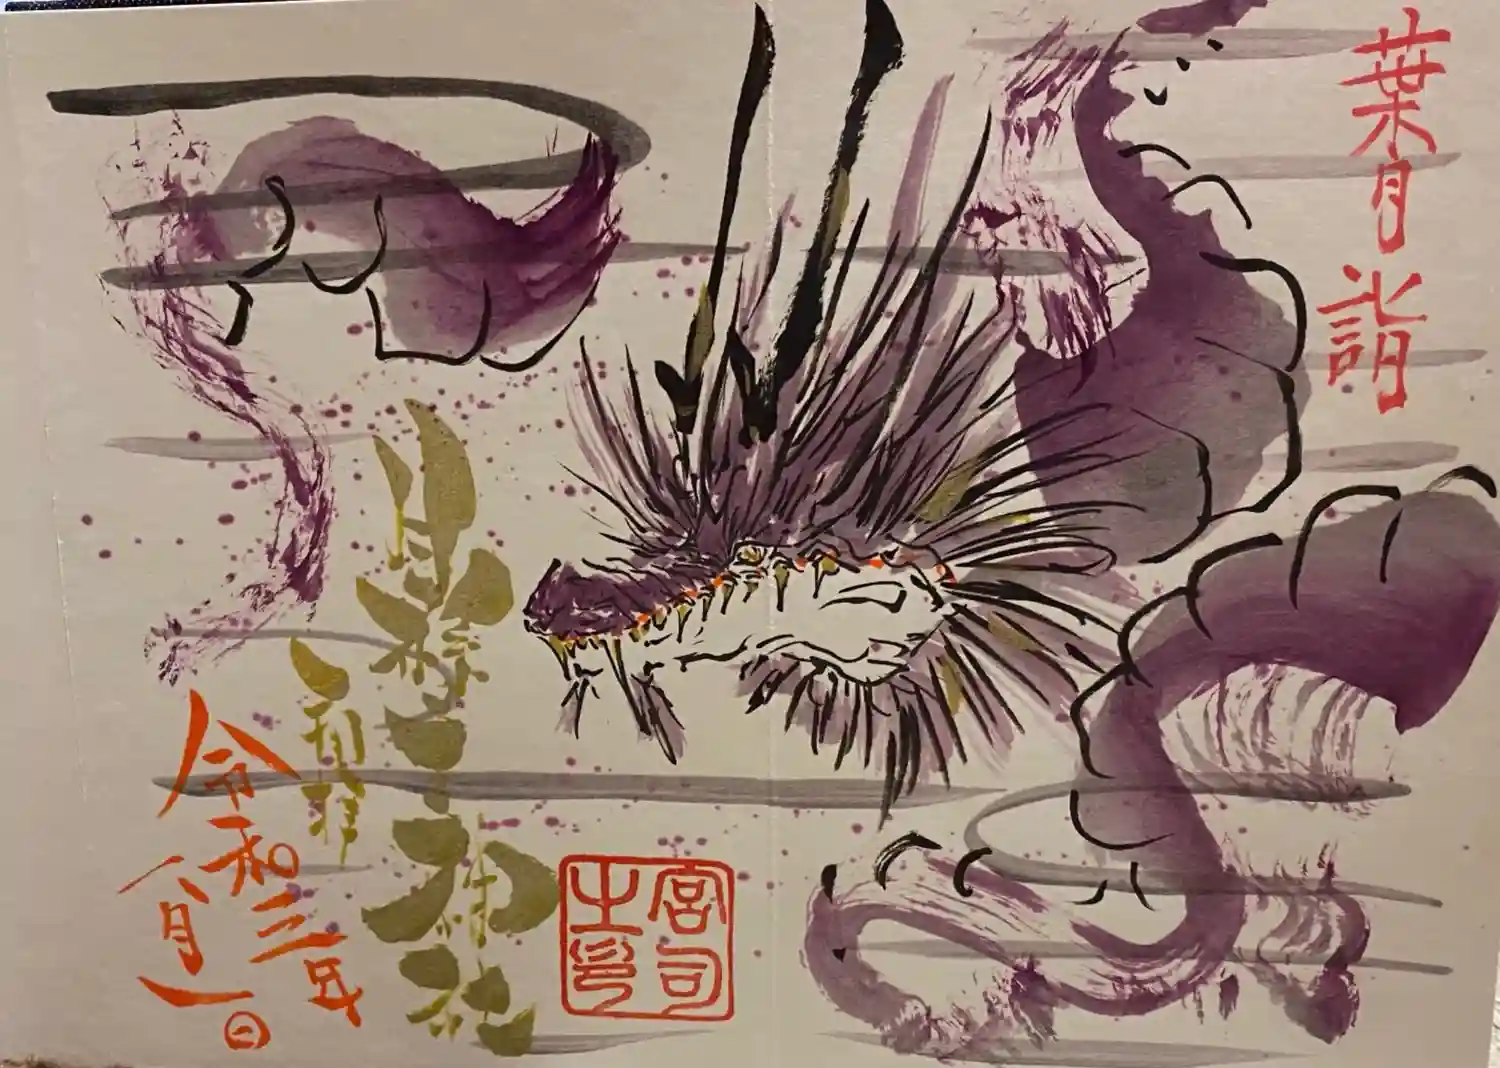 葉月詣
神社
令和三年
八月一日
宮司
之印